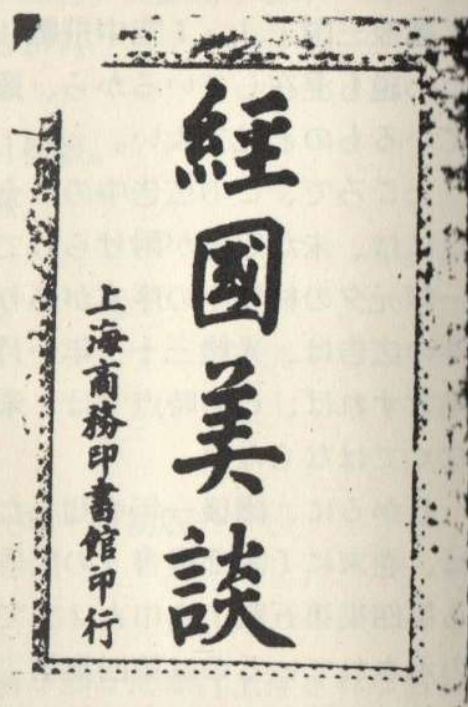 經國美談
上海商務印書館印行